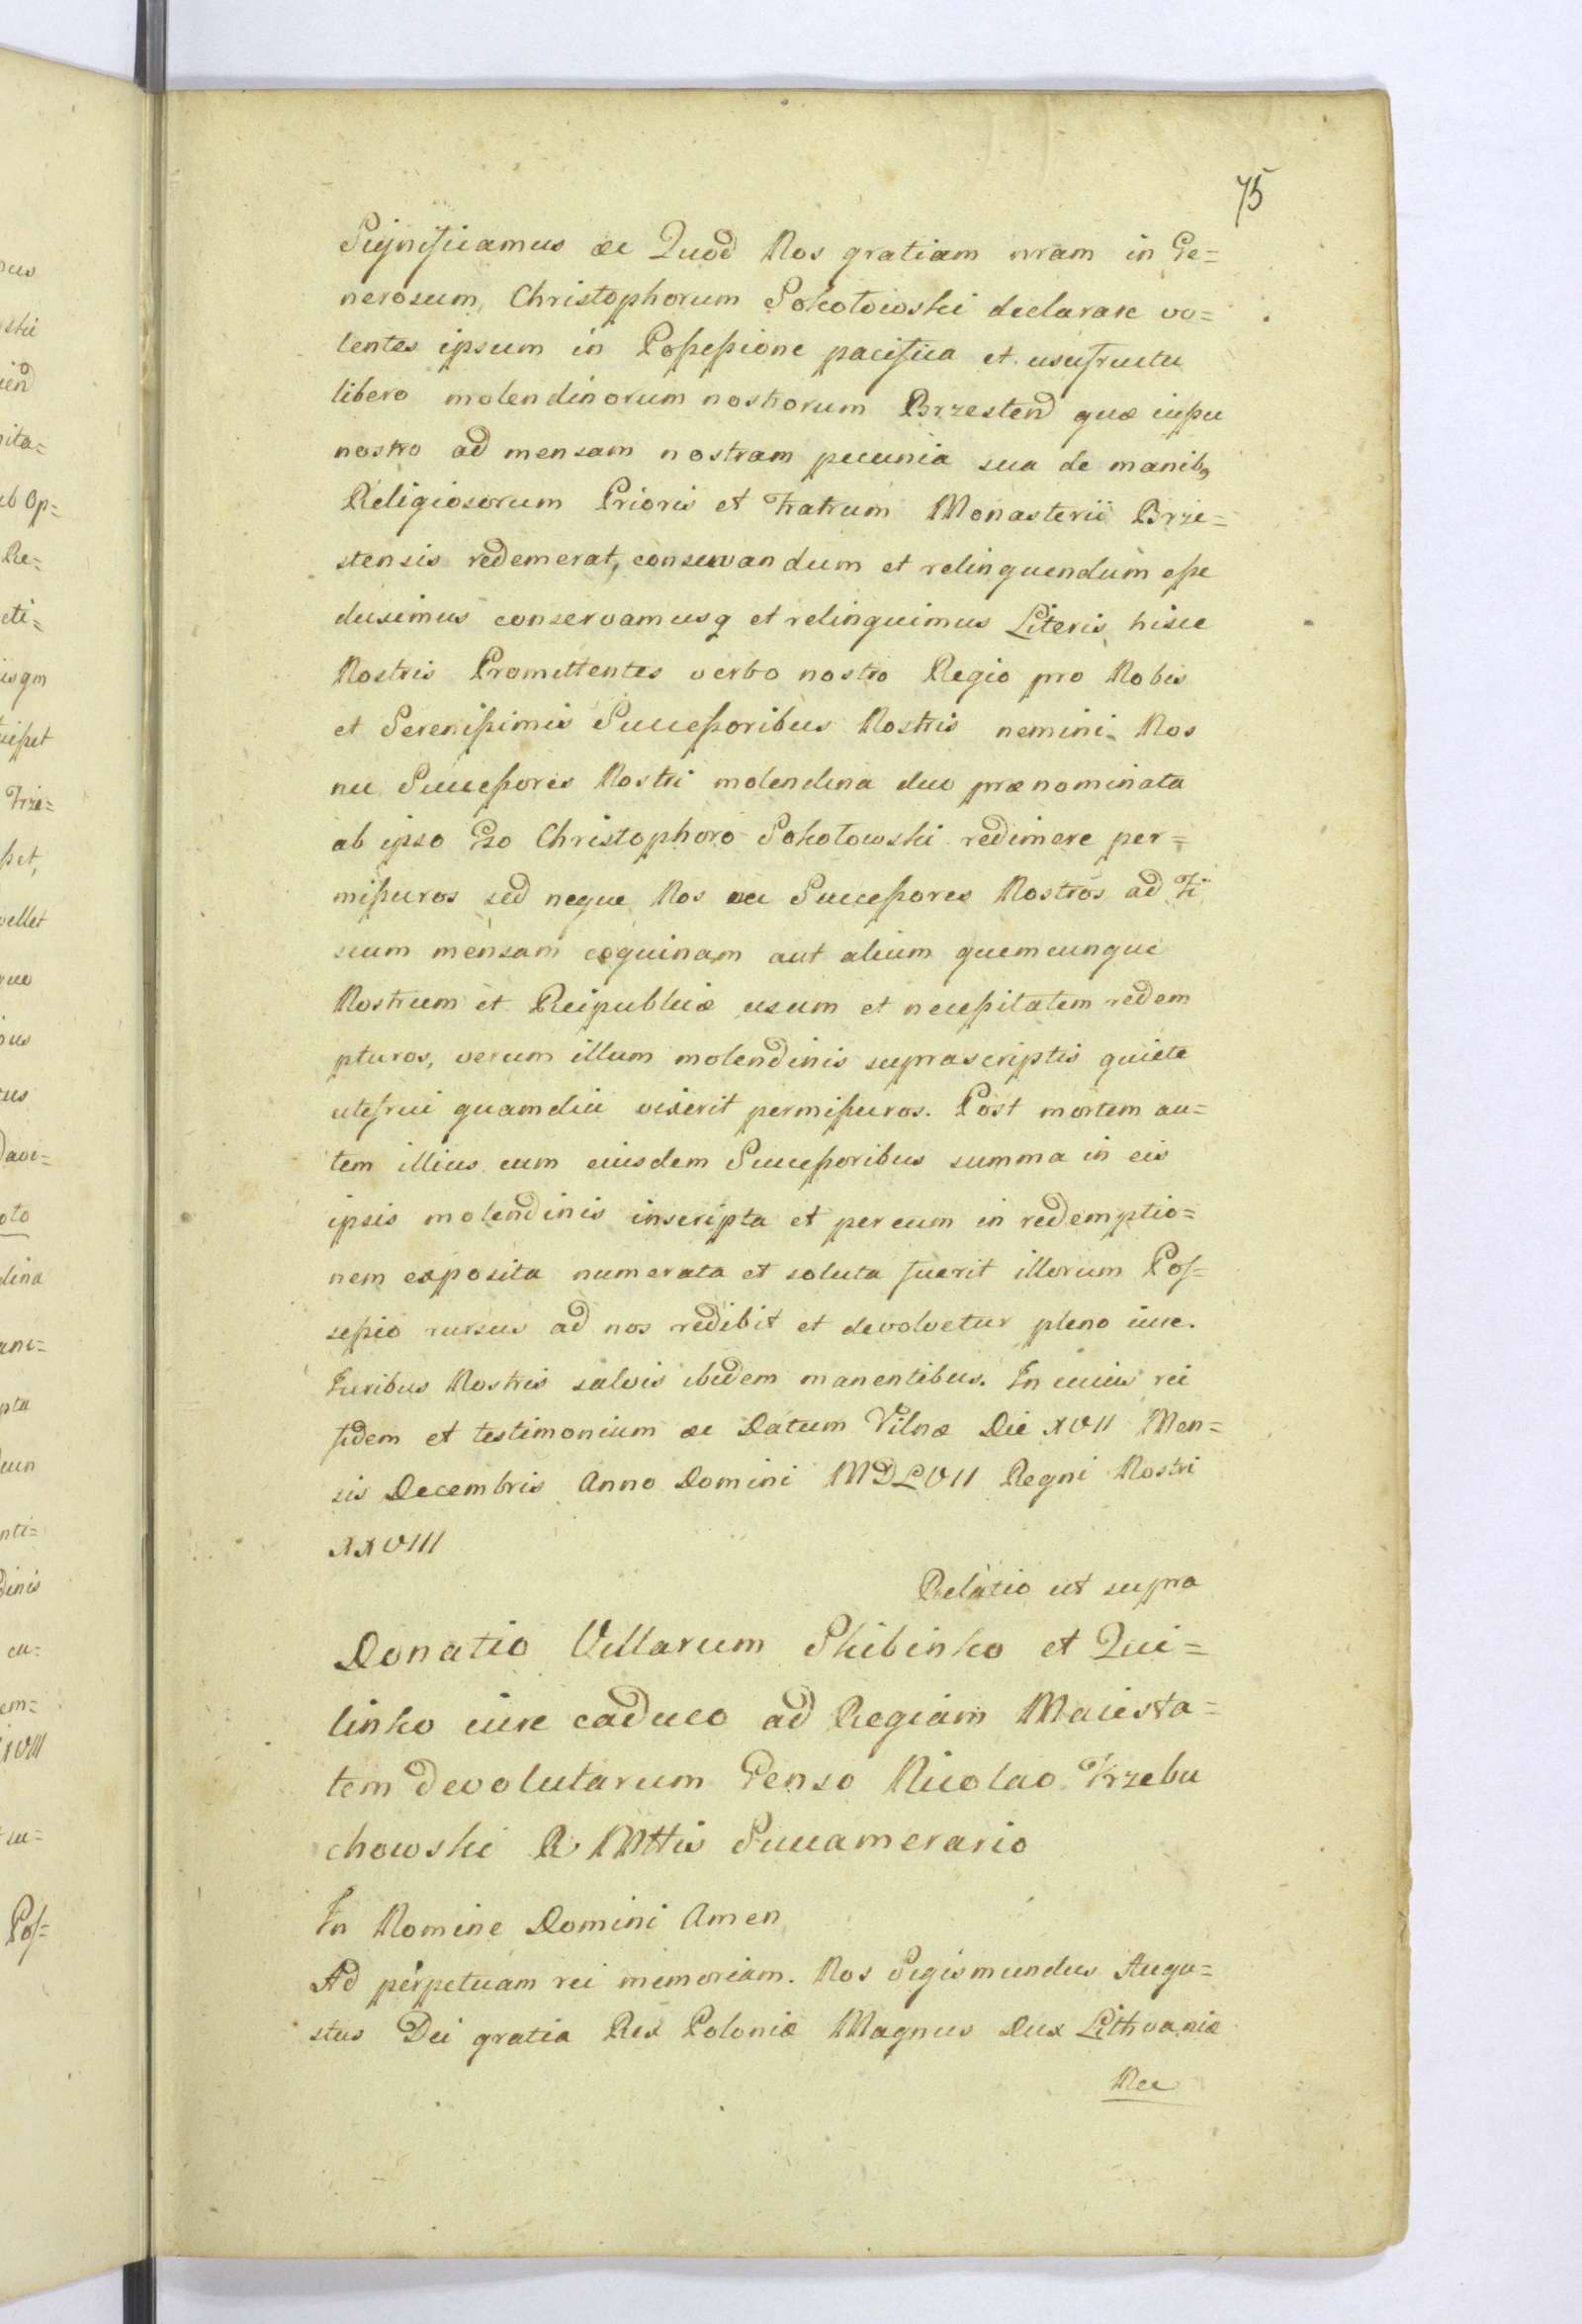 75
Significamus &c Quod Nos gratiam nram in Ge=
nerosum, Christophorum Sokołowski declarare vo=
lentes ipsum in Possessione pacifica et usufructu
libero molendinorum nostrorum Brzesten quæ iussu
nostro ad mensam nostram pecunia sua de manib9
Religiosorum Prioris et Fratrum Monasterii Brze=
stensis redemerat, conservandum et relinquendum esse
duximus conservamusq et relinquimus Literis hisce
Nostris Promittentes verbo nostro Regio pro Nobis
et Serenissimis Successoribus Nostris nemini Nos
nec Successores Nostri molendina duo prænominata
ab ipso Gso Christophoro Sokołowski redimere per=
missuros sed neque Nos nec Successores Nostros ad Fi
scum mensam coquinam aut alium quemcunque
Nostrum et Reipublicæ usum et necessitatem redem
pturos, verum illum molendinis suprascriptis quiete
utefrui quamdiu vixerit permissuros. Post mortem au=
tem illius cum eiusdem Successoribus summa in eis
ipsis molendinis inscripta et per eum in redemptio=
nem exposita numerata et soluta fuerit illorum Pos=
sessio rursus ad nos redibit et devolvetur pleno iure.
Iuribus Nostris salvis ibidem manentibus. In cuius rei
fidem et testimonium &c Datum Vilnæ Die XVII Men=
sis Decembris Anno Domini MDLVII Regni Nostri
XXVIII
Relatio ut supra
Donatio Villarum Skibinko et Qui=
linko iure caduco ad Regiam Maiesta=
tem devolutarum Genso Nicolao Trzebu
chowski R Mttis Succamerario
In Nomine Domini Amen
Ad perpetuam rei memoriam. Nos Sigismundus Augu=
stus Dei gratia Rex Poloniæ Magnus Dux Lithvaniæ
Nec